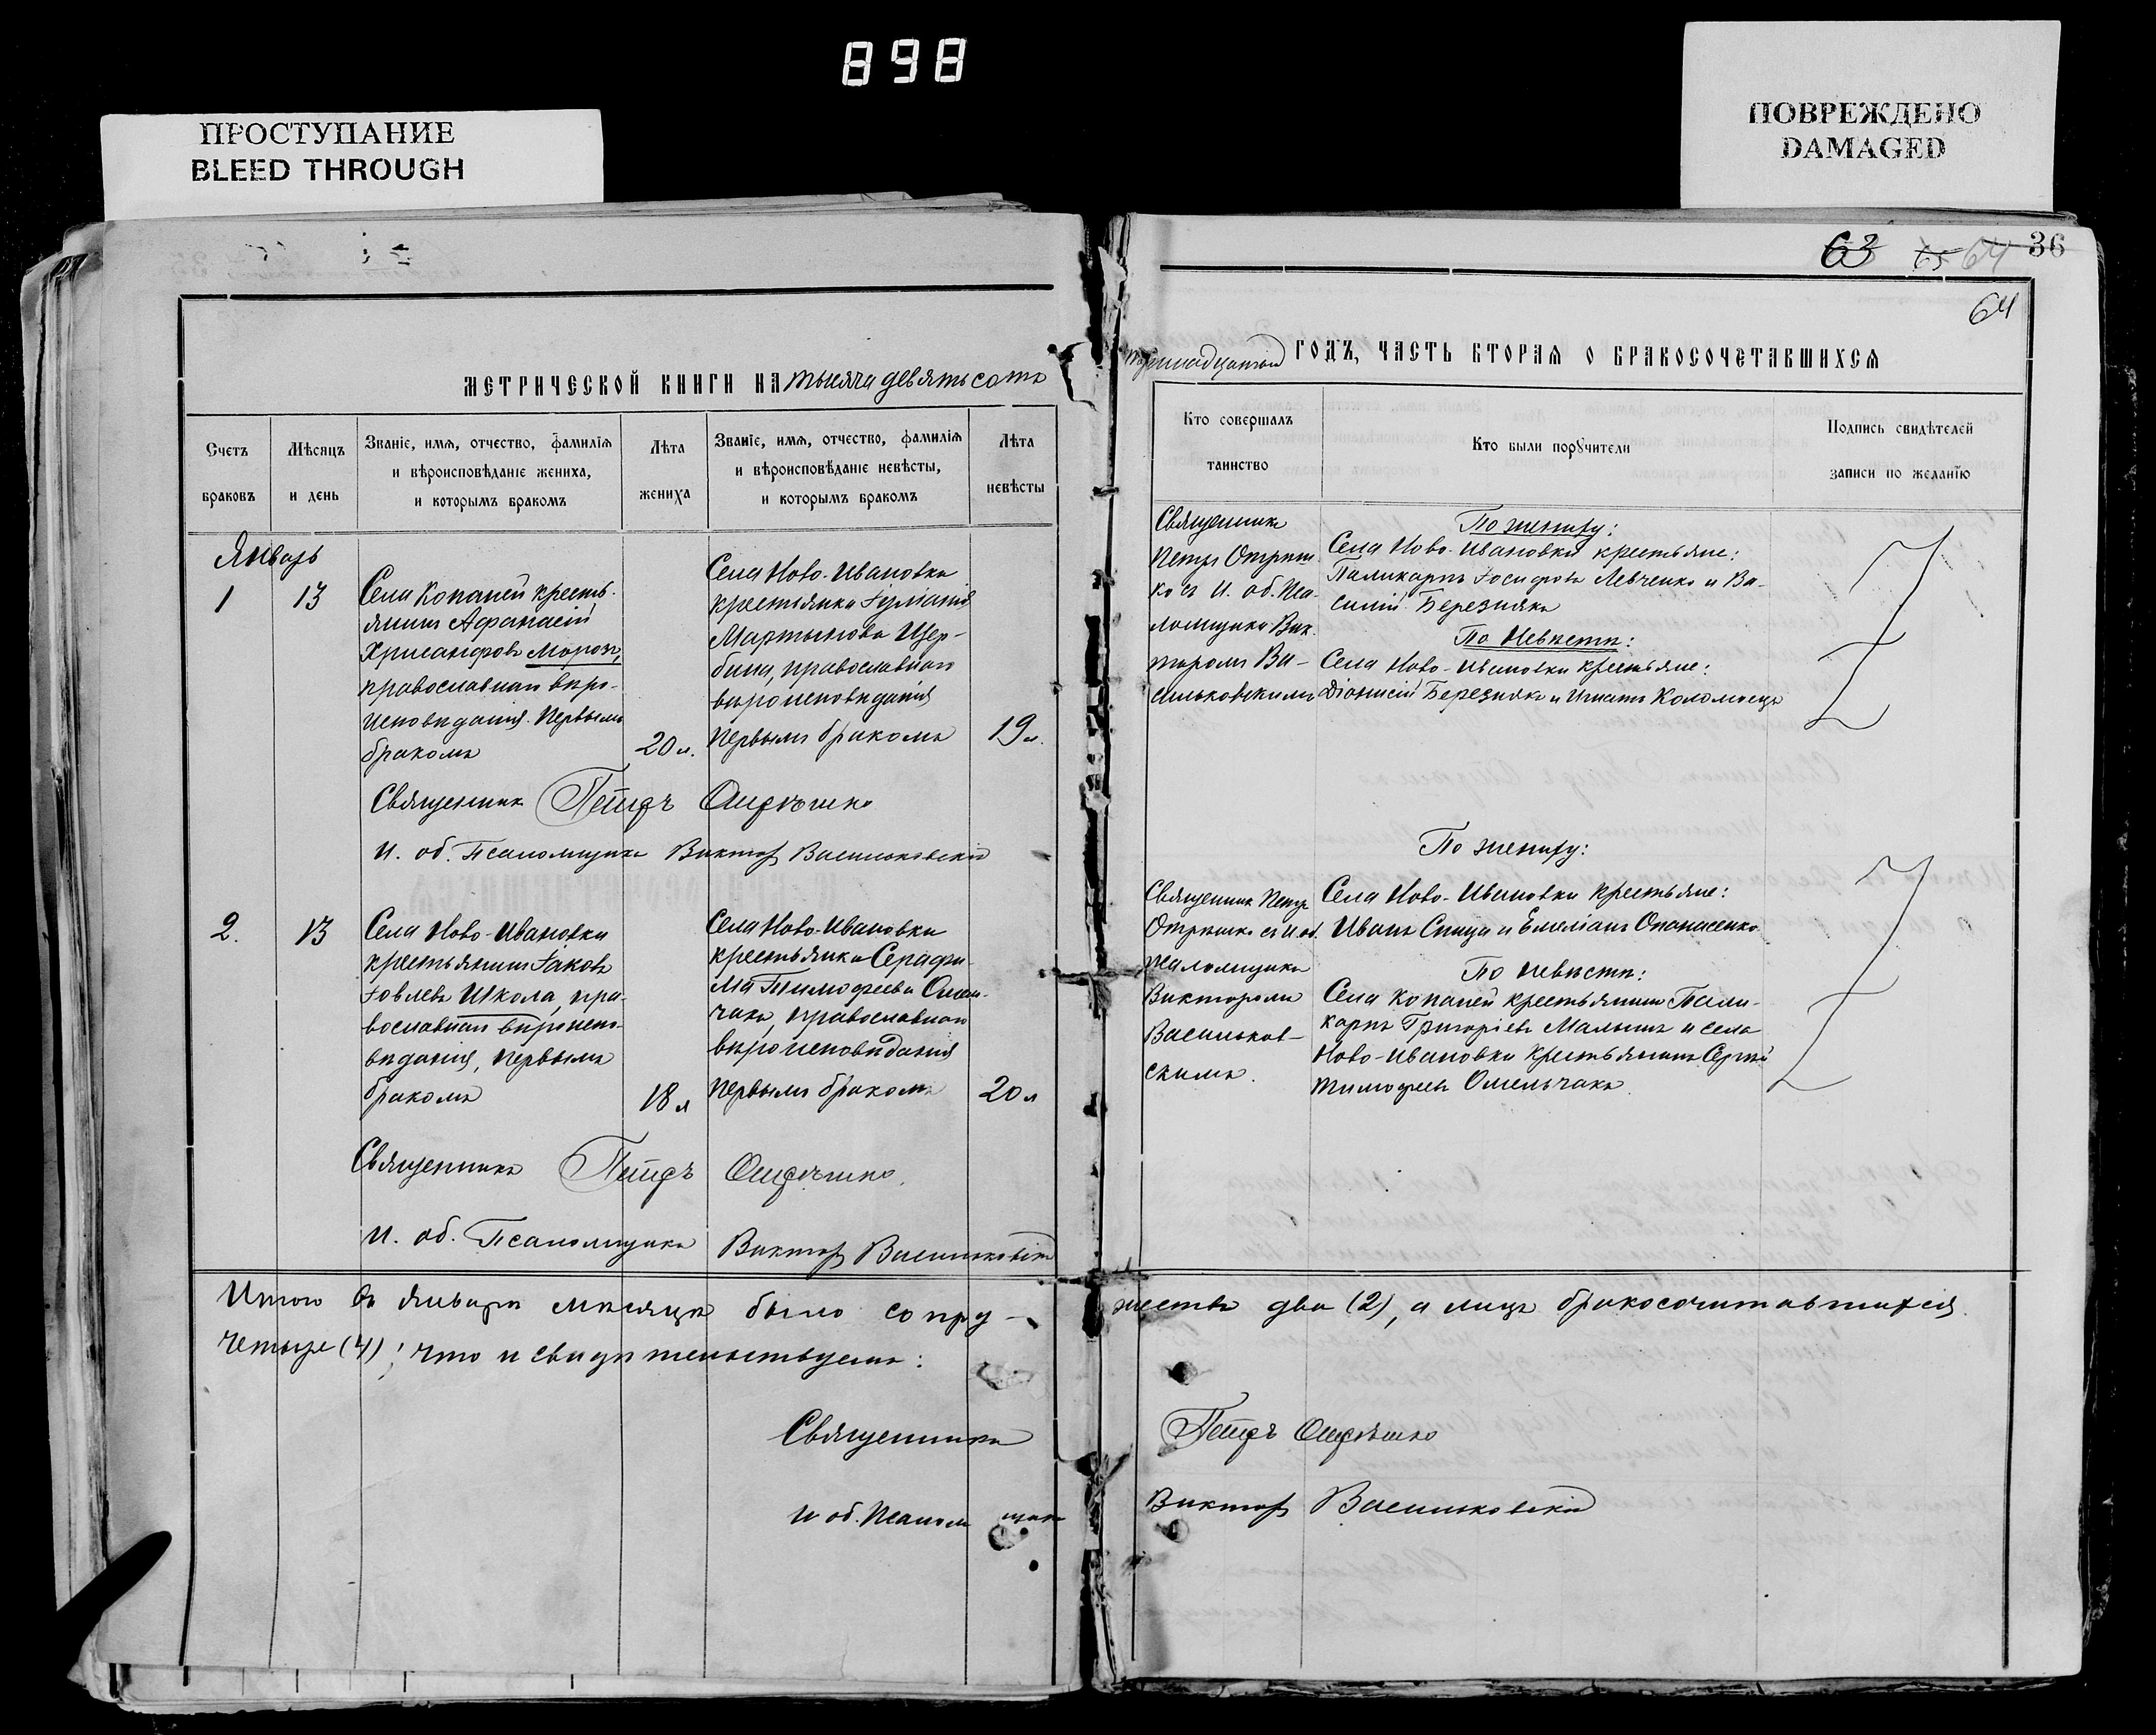 898
ПРОСТУПАНИЕ
BLEED THROUGH
ПОВРЕЖДЕНО
DAMAGED
63 65 64 36
64
МЕТРИЧЕСКОЙ КНИГИ НА тысяча девятьсотъ
тринадцатый ГОДЪ, ЧАСТЬ ВТОРАЯ О БРАКОСОЧЕТАВШИХСЯ
Счетъ
браковъ
Мѣсяцъ
и день
Званіе, имя, отчество, фамилія
и вѣроисповѣданіе жениха,
и которымъ бракомъ
Лѣта
жениха
Званіе, имя, отчество, фамилія
и вѣроисповѣданіе невѣсты,
и которымъ бракомъ
Лѣта
невѣсты
Кто совершалъ
таинство
Кто были порꙋчители
Подпись свидѣтелей
записи по желанїю
Январь
1
13
Села Копаней кресть-
янинъ Афанасій
Хрисанфовъ Морозъ,
православнаго вѣро-
исповѣданія. Первымъ
бракомъ
20 л.
Села Ново-Ивановки
крестьянка Іуліанія
Мартынова Щер-
бина, православнаго
вѣроисповѣданія
первымъ бракомъ
19 л.
Священникъ
Петръ
ко съ И. об. Пса-
ломщика Вик-
торомъ Ва-
сильковскимъ
По жениху:
Села Ново-Ивановки крестьяне:
Поликарпъ Іосифовъ Левченко и Ва-
силій Березнякъ
По Невѣстѣ:
Села Ново-Ивановки крестьяне:
Діонисій Березнякъ и Игнатъ Коломоецъ
Священникъ Петръ
И. об. Псаломщика Викторъ Васильковскій
2.
13
Села Ново-Ивановки
крестьянинъ Іаковъ
Іовлевъ Школа, пра-
вославнаго вѣроиспо-
вѣданія, первымъ
бракомъ
18 л
Села Ново-Ивановки
крестьянка Серафи-
ма Тимофеева Омель-
чакъ, православнаго
вѣроисповѣданія
первымъ бракомъ
20 л
Священникъ Петръ
съ И. об.
псаломщика
Викторомъ
Васильков-
скимъ.
По жениху:
Села Ново-Ивановки крестьяне:
Иванъ Спица и Емеліанъ Опанасенко
По невѣстѣ:
Села Копаней крестьянинъ Поли-
карпъ Григоріевъ Малышъ и села
Ново-Ивановки крестьянинъ Сергѣй
Тимофеевъ Омельчакъ.
Священникъ Петръ
И. об. Псаломщика Викторъ Васильковскій
Итого въ январѣ мѣсяцѣ было супру-жествъ два (2), а лицъ бракосочитавшихся
четыре (4); что и свидѣтельствуемъ:
Священникъ Петръ
И об. Псаломщика Викторъ Васильковскій